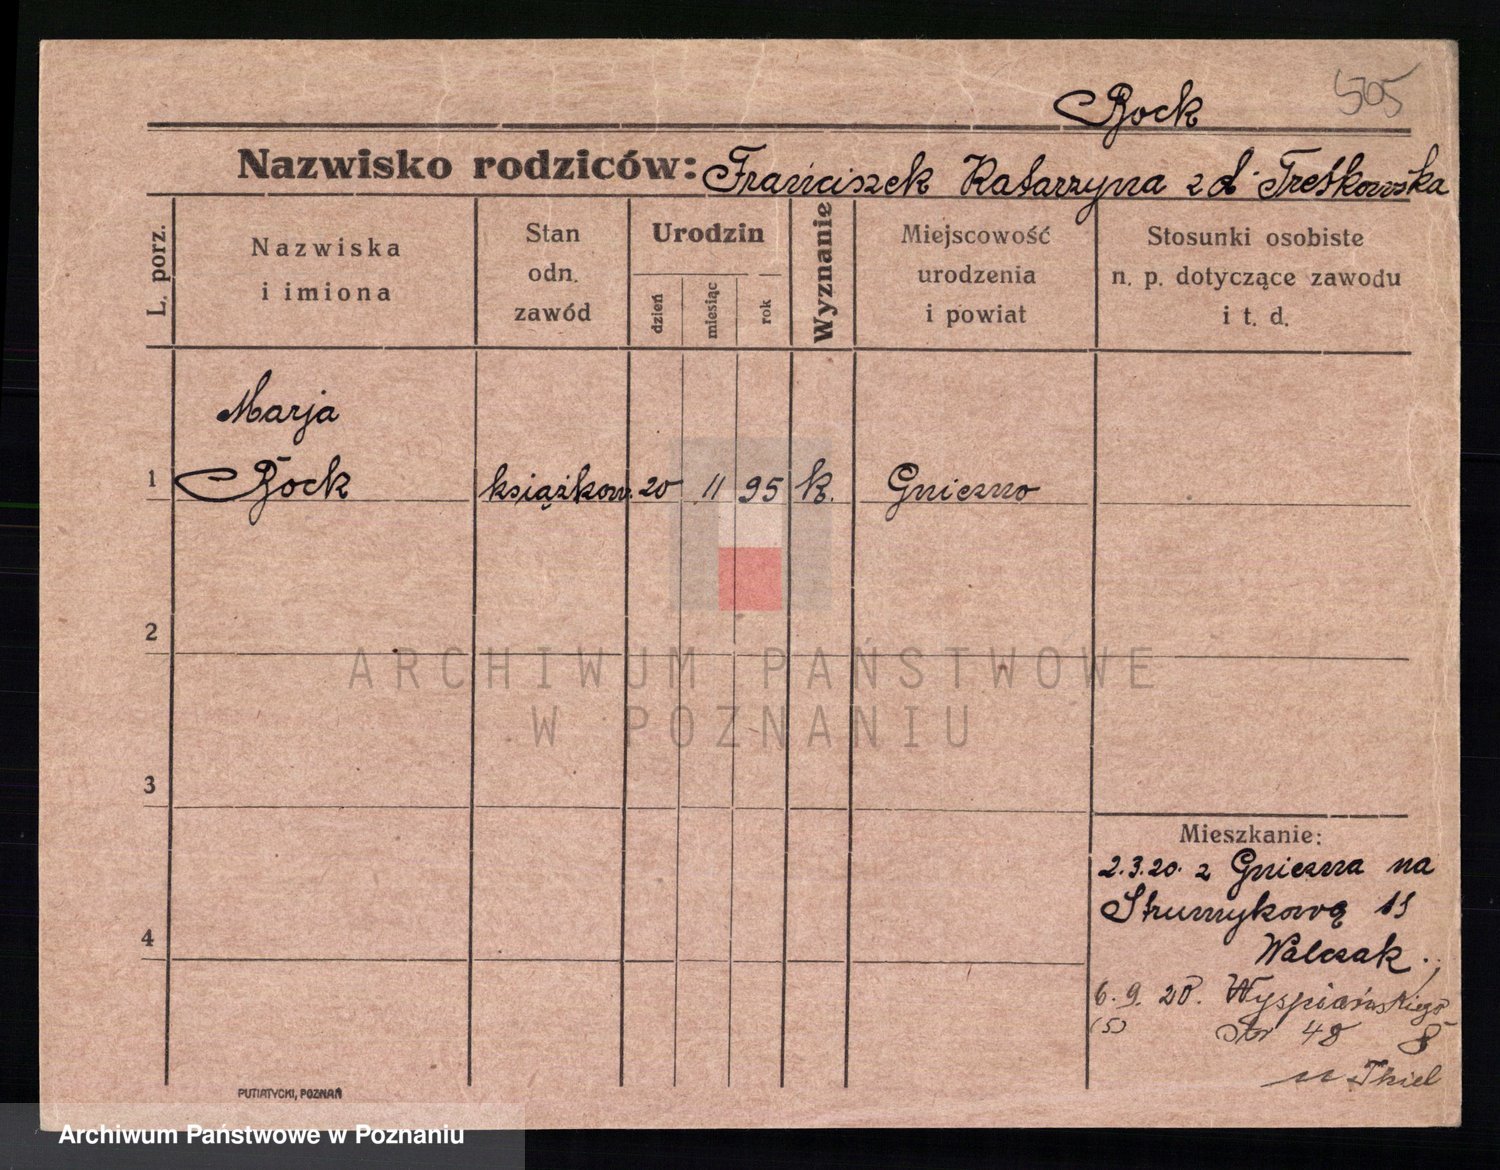 505
Bock
Nazwisko rodziców: Franciszek Katarzyna z d. Tretkowska
L. porz.
Nazwiska
i imiona
Stan
odn.
zawód
Urodzin
dzień
miesiąc
rok
Wyznanie
Miejscowość
urodzenia
i powiat
Stosunki osobiste
n. p. dotyczące zawodu
i t. d.
Marja
1 Bock książkow. 20 11 95 k. Gniezno
2
ARCHIWUM PAŃSTWOWE
W POZNANIU
3
Mieszkanie:
2.3.20. z Gniezna na
Strumykową 15
4
Walczak
6.9.20. Wyspiańskiego
(5) 48 8
u Thiel
PUTIATYCKI, POZNAŃ
Archiwum Państwowe w Poznaniu